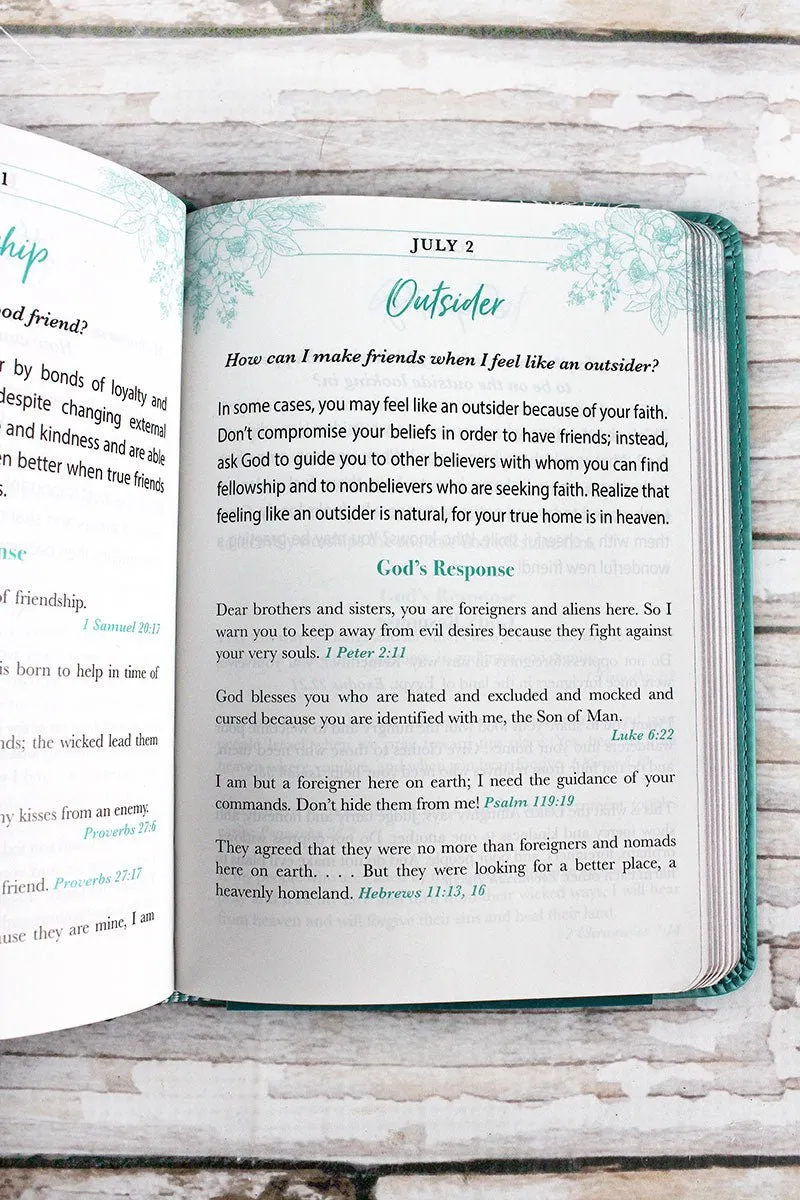 1
hip
od friend?
r by bonds of loyalty and
despite changing external
and kindness and are able
en better when true friends
s.
nse
of friendship.
1 Samuel 20:17
is born to help in time of
nds; the wicked lead them
ny kisses from an enemy.
Proverbs 27:6
friend. Proverbs 27:17
use they are mine, I am
JULY 2
Outsider
How can I make friends when I feel like an outsider?
In some cases, you may feel like an outsider because of your faith.
Don't compromise your beliefs in order to have friends; instead,
ask God to guide you to other believers with whom you can find
fellowship and to nonbelievers who are seeking faith. Realize that
feeling like an outsider is natural, for your true home is in heaven.
God's Response
Dear brothers and sisters, you are foreigners and aliens here. So I
warn you to keep away from evil desires because they fight against
your very souls. 1 Peter 2:11
God blesses you who are hated and excluded and mocked and
cursed because you are identified with me, the Son of Man.
Luke 6:22
I am but a foreigner here on earth; I need the guidance of your
commands. Don't hide them from me! Psalm 119:19
They agreed that they were no more than foreigners and nomads
here on earth. . . . But they were looking for a better place, a
heavenly homeland. Hebrews 11:13, 16